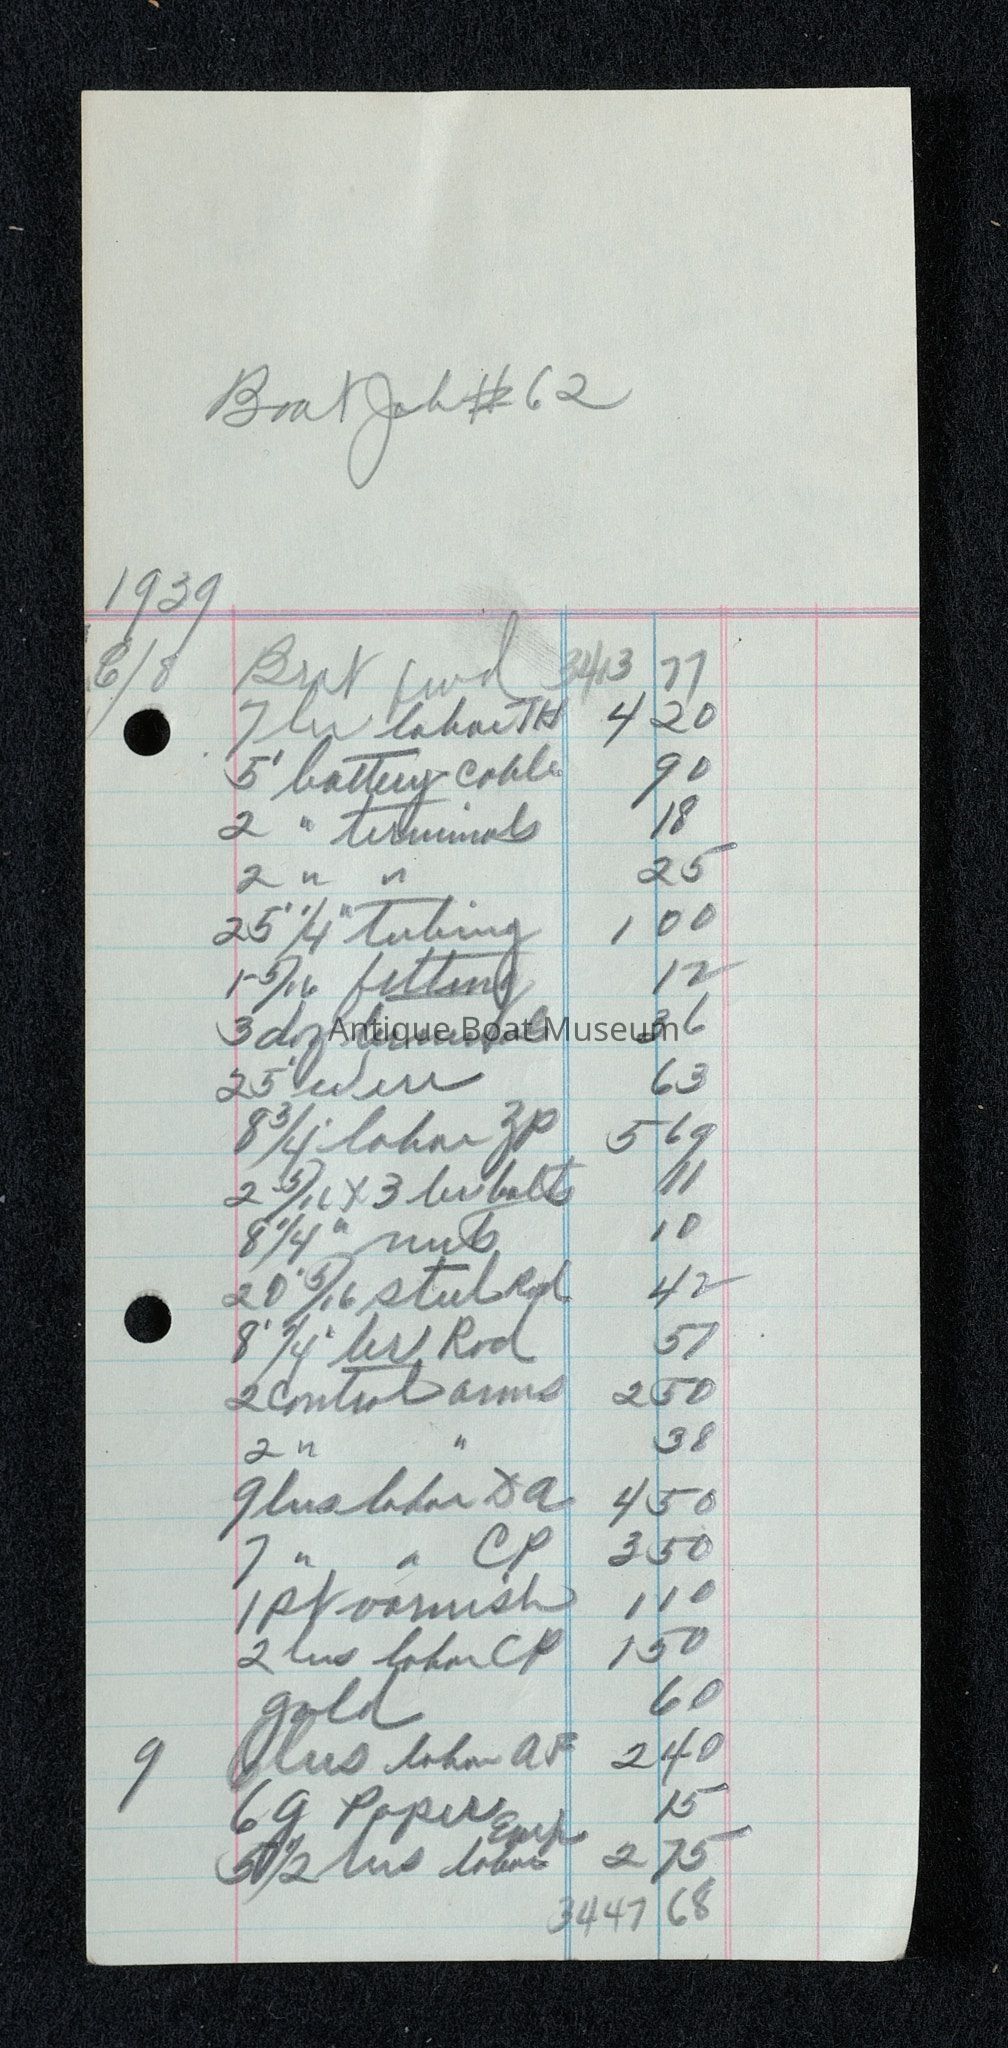 Boat Job #62
1939
6/8 Brot fwd 3413 77
7 hr labor TH 4 20
5' battery cable 90
2 " terminals 18
2 " " 25
25' 1/4" tubing 1 00
1-5/16 fitting 12
3 doz terminals 36
25' wire 63
8 3/4 labor ZP 5 69
2 5/16 X 3 br bolts 11
8 1/4" nuts 10
20' 5/16 steel Rod 42
8' 1/4" brs Rod 57
2 control arms 2 50
2 " " 38
9 hrs labor DA 4 50
7 " " CP 3 50
1 pt varnish 1 10
2 hrs labor CP 1 50
gold 60
9 hrs labor AF 2 40
6 g Papers 15
5 1/2 hrs labor 2 75
3447 68
Antique Boat Museum